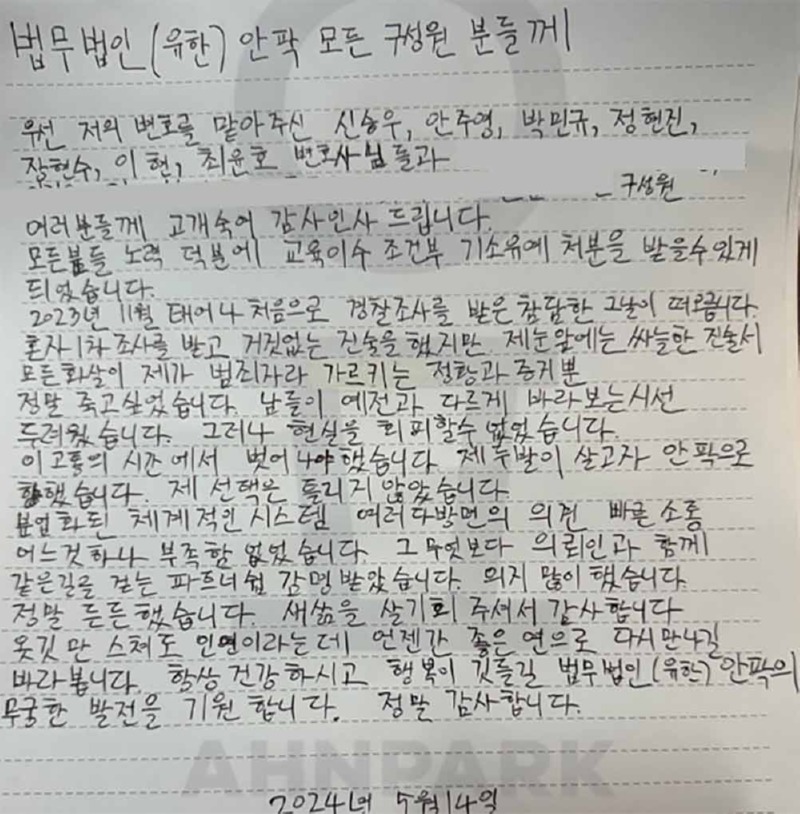 법무법인(유한) 안팍 모든 구성원 분들께
우선 저의 변호를 맡아주신 신승우, 안주영, 박민규, 정현진,
장현수, 이 현, 최윤호 변호사님들과
구성원
여러분들께 고개숙여 감사인사 드립니다.
모든분들 노력 덕분에 교육이수 조건부 기소유예 처분을 받을수있게
되었습니다.
2023년 11월 태어나 처음으로 경찰조사를 받은 참담한 그날이 떠오릅니다.
혼자 1차조사를 받고 거짓없는 진술을 했지만 제눈앞에는 싸늘한 진술서
모든화살이 제가 범죄자라 가르키는 정황과 증거뿐
정말 죽고싶었습니다. 남들이 예전과 다르게 바라보는시선
두려웠습니다. 그러나 현실을 회피할수 없었습니다.
이 고통의 시간에서 벗어나야했습니다. 제두발이 살고자 안팍으로
향했습니다. 제 선택은 틀리지 않았습니다
분업화된 체계적인 시스템 여러다방면의 의견 빠른 소통
어느것하나 부족함 없었습니다. 그무엇보다 의뢰인과 함께
같은길을 걷는 파트너쉽 감명받았습니다. 의지 많이 했습니다.
정말 든든했습니다. 새삶을 살기회 주셔서 감사합니다
옷깃만 스쳐도 인연이라는데 언젠간 좋은 연으로 다시만나길
바라봅니다. 항상 건강하시고 행복이 깃들길 법무법인(유한) 안팍의
무궁한 발전을 기원합니다. 정말 감사합니다.
AHNPARK
2024년 5월14일